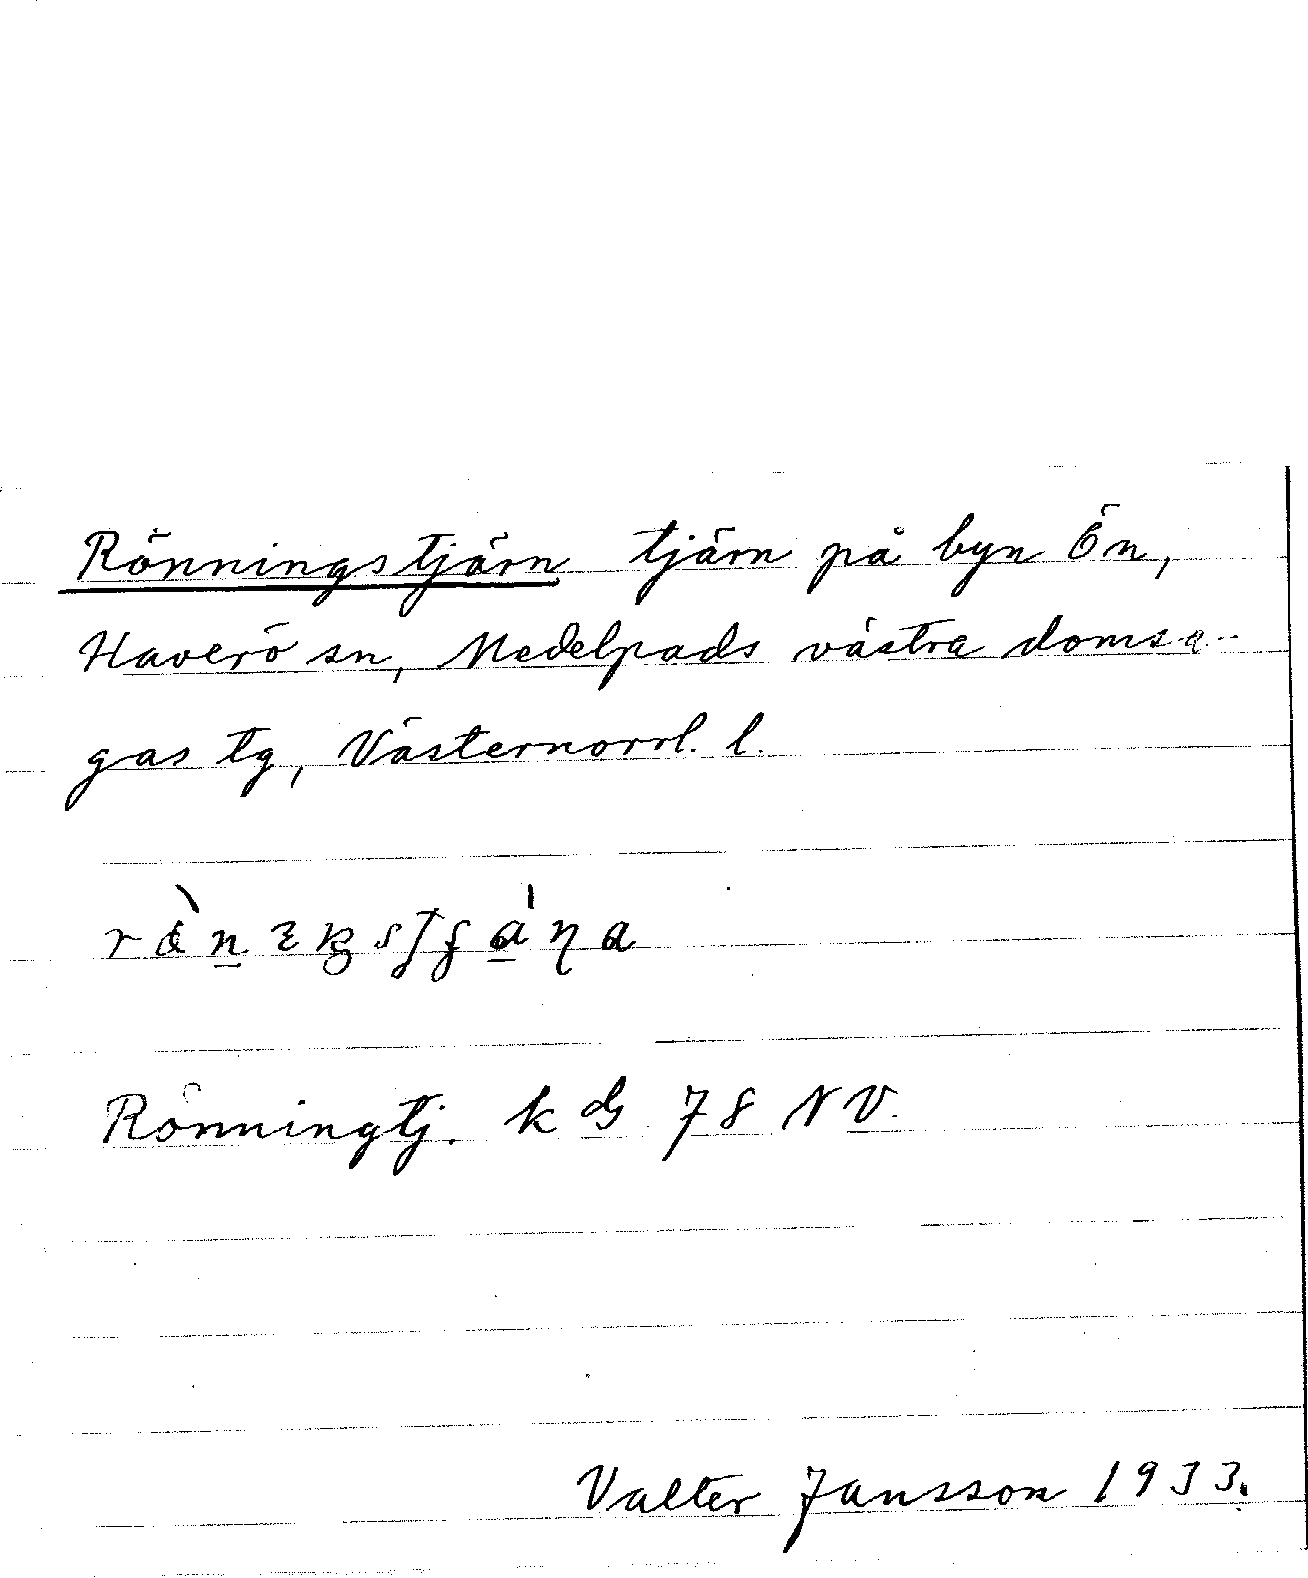 Rönningstjärn tjärn på byn Ön,
Haverö sn, Medelpads västra domsa-
gas tg, Västernorrl. l.
Rönningtj. k 78 NV.
Valter Jansson 1933.